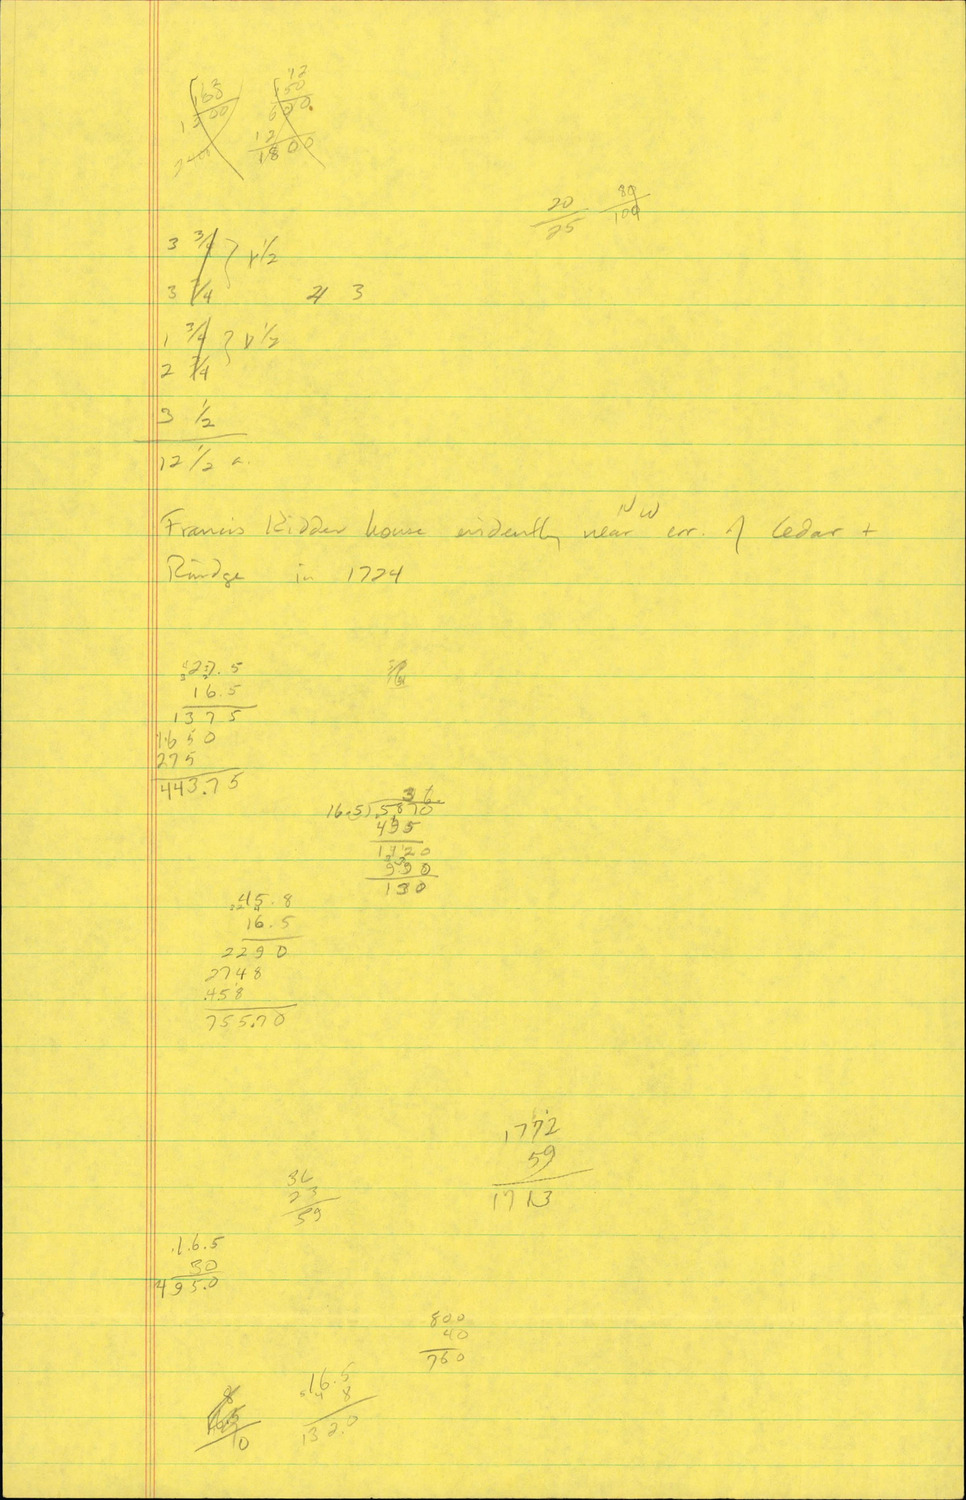 12
150
600.
12
1800
20 80
25 100
3 3/4 } 1/2
3 3/4 4 3
1 3/4 } 1/2
2 3/4
3 1/2
12 1/2 a.
NW
Francis Kidder house evidently near cor. of Cedar +
Rindge in 1724
27.5
16.5
1375
1650
275
443.75
36.
16.5)5870
495
1920
990
130
45.8
16.5
2290
2748
458
755.70
1772
59
1713
36
23
59
16.5
30
495.0
800
40
760
16.5
8
132.0